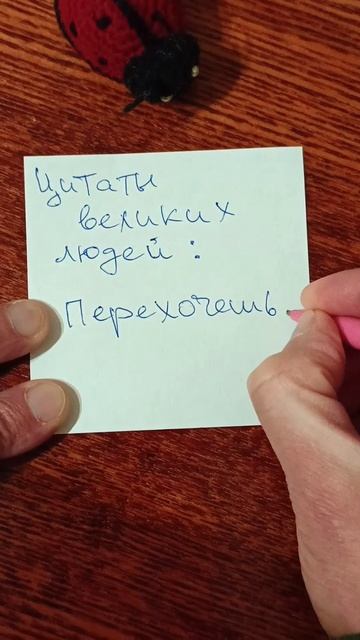 Цитаты
великих
людей:
Перехочешь